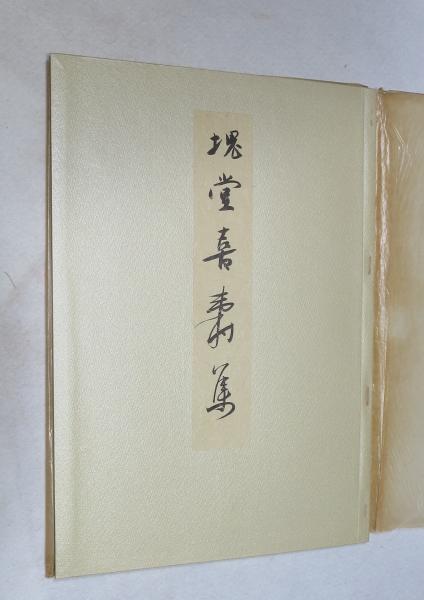 塊堂喜寿集